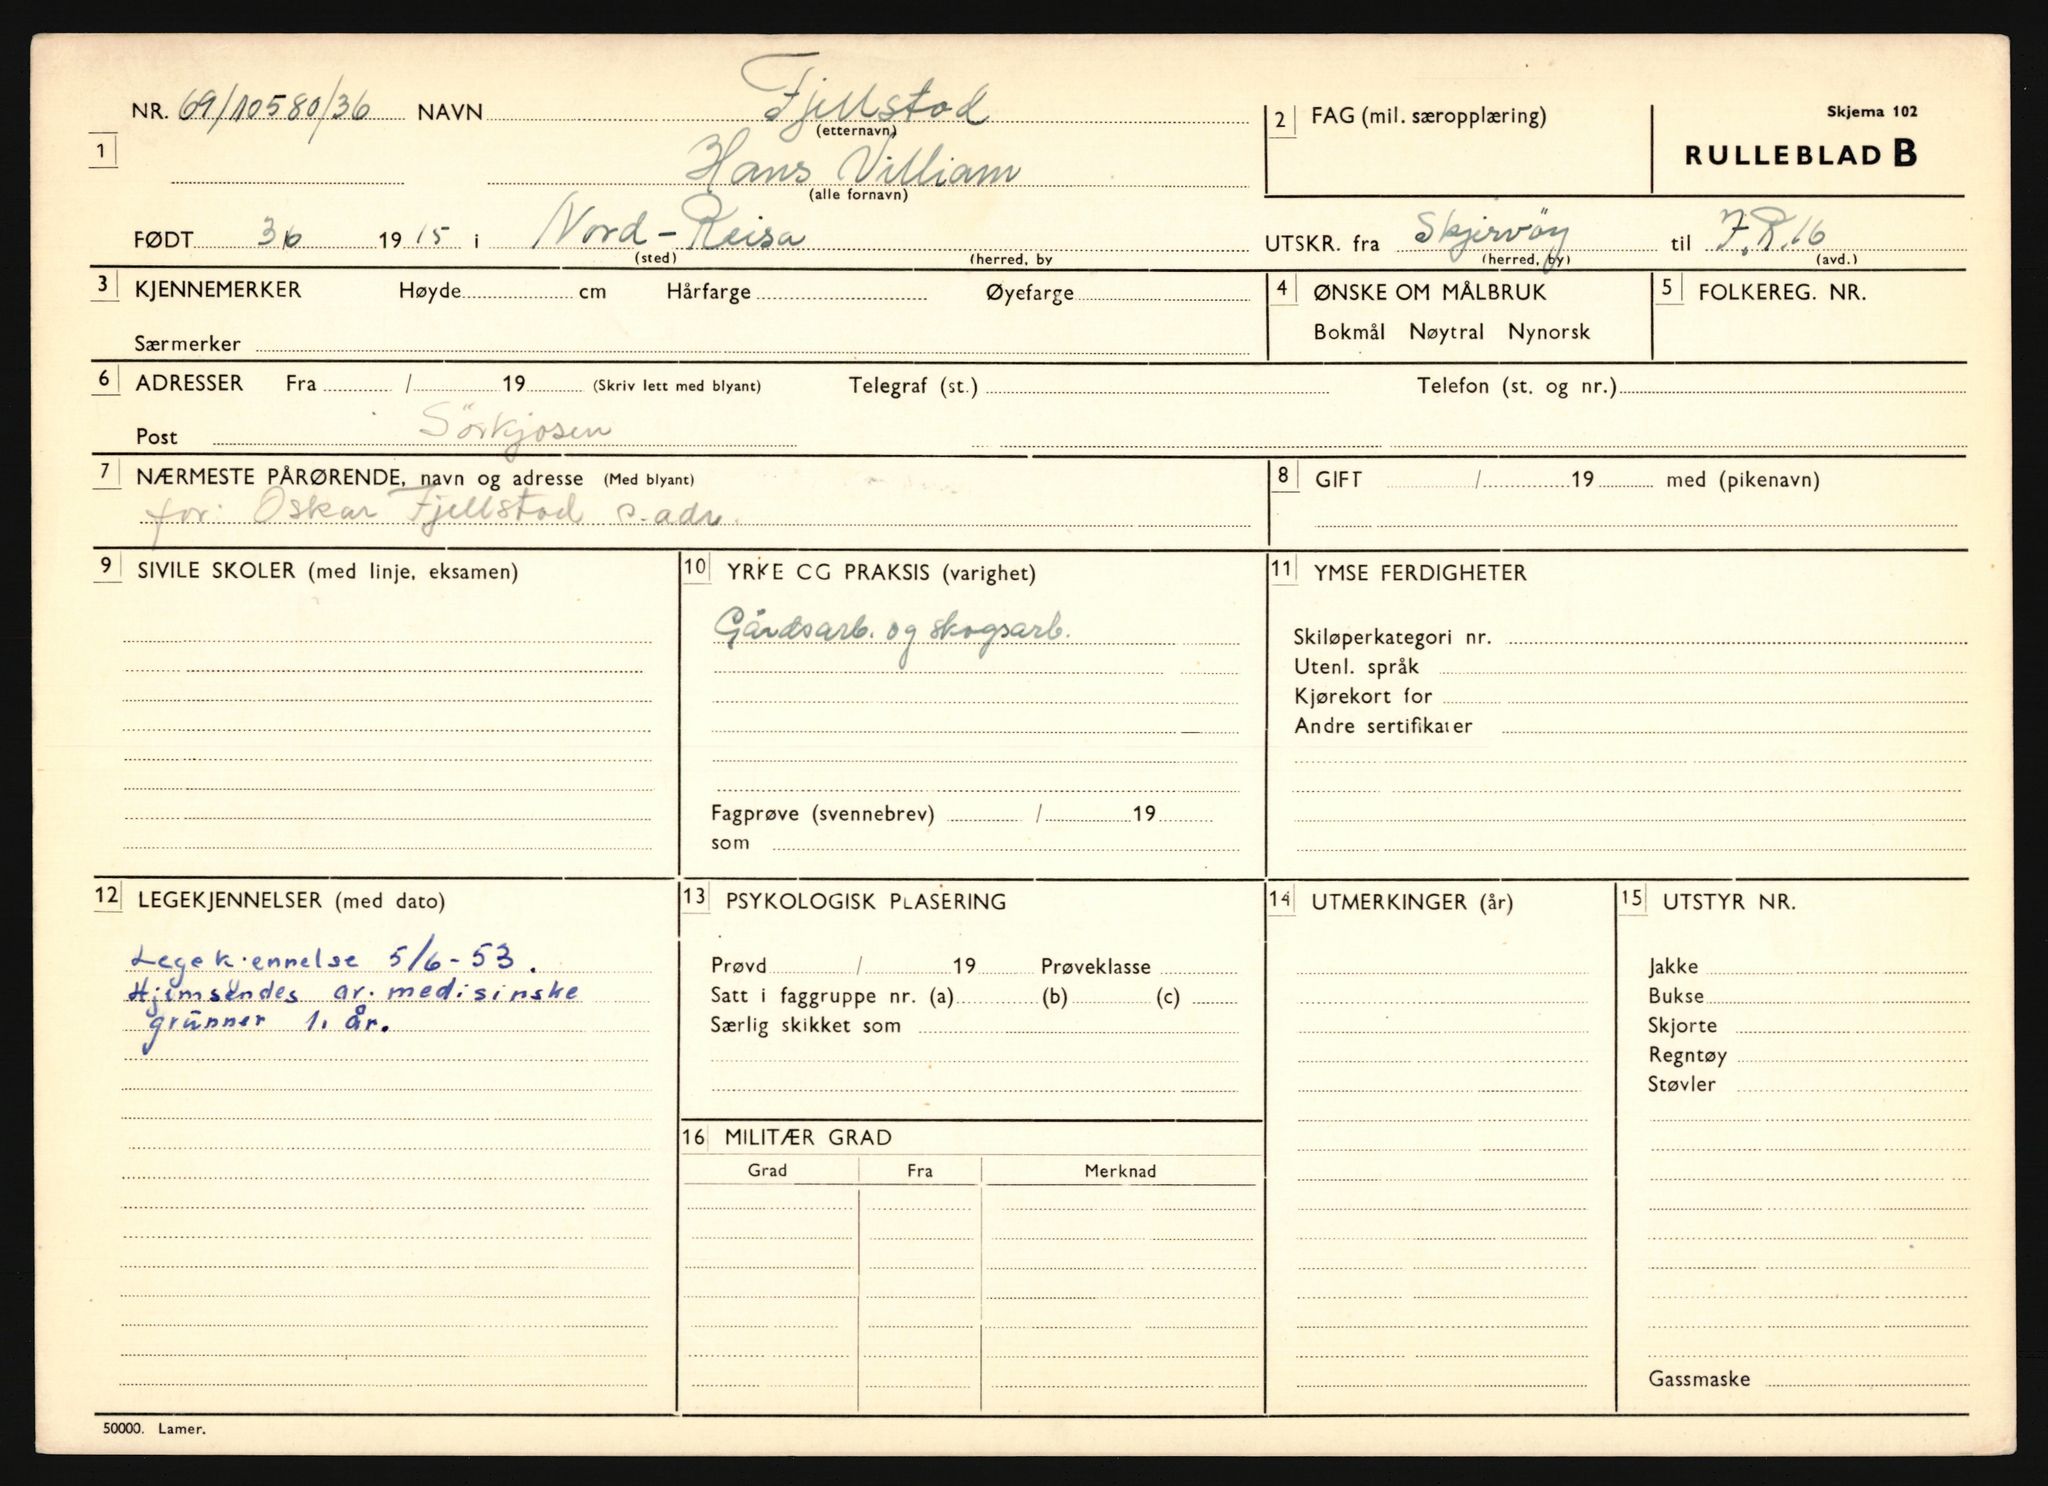 NR. 69/10580/36 NAVN Fjellstad
(etternavn)
1 Hans Villiam
(alle fornavn)
FØDT 3/6 1915 i Nord-Reisa
(sted) (herred, by
2 FAG (mil. særopplæring)
Skjema 102
RULLEBLAD B
UTSKR. fra Skjervöy til I.R.16
(herred, by) (avd.)
3 KJENNEMERKER Høyde cm Hårfarge Øyefarge
Særmerker
4 ØNSKE OM MÅLBRUK
Bokmål Nøytral Nynorsk
5 FOLKEREG. NR.
6 ADRESSER Fra / 19 (Skriv lett med blyant) Telegraf (st.) Telefon (st. og nr.)
Post Sörkjosen
7 NÆRMESTE PÅRØRENDE, navn og adresse (Med blyant)
for: Oskar Fjellstad s. adr.
8 GIFT / 19 med (pikenavn)
9 SIVILE SKOLER (med linje, eksamen)
10 YRKE CG PRAKSIS (varighet)
Gårdsarb. og skogsarb.
Fagprøve (svennebrev) / 19
som
11 YMSE FERDIGHETER
Skiløperkategori nr.
Utenl. språk
Kjørekort for
Andre sertifikater
12 LEGEKJENNELSER (med dato)
Legekjennelse 5/6-53.
Hjemsendes av. medisinske
grunner 1. år.
13 PSYKOLOGISK PLASERING
Prøvd / 19 Prøveklasse
Satt i faggruppe nr. (a) (b) (c)
Særlig skikket som
14 UTMERKINGER (år)
15 UTSTYR NR.
Jakke
Bukse
Skjorte
Regntøy
Støvler
Gassmaske
16 MILITÆR GRAD
Grad Fra Merknad
50000. Lamer.